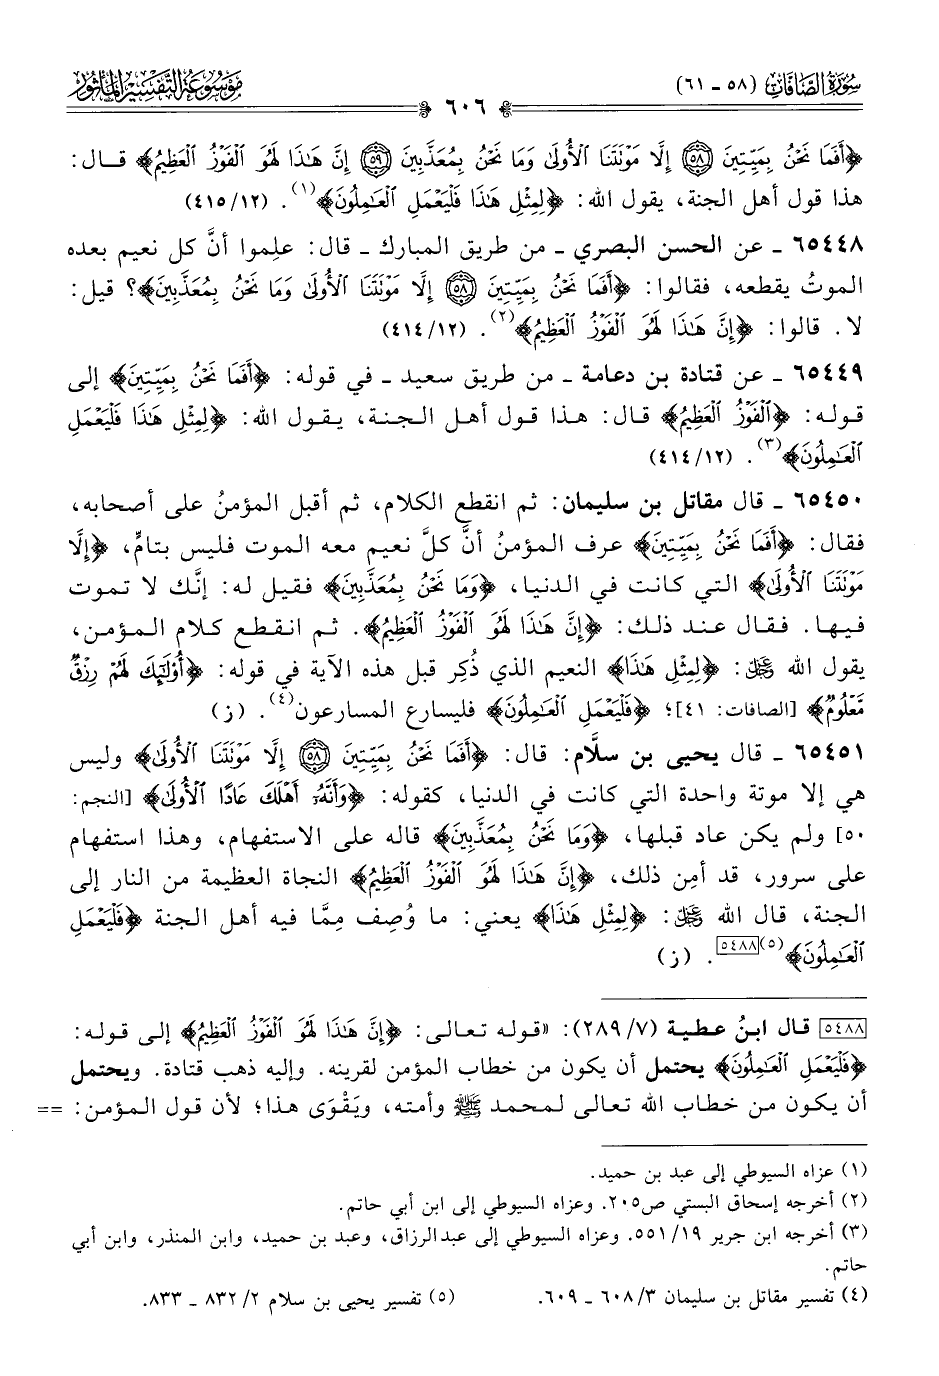 سُورَةُ الصَّافَّات (٥٨ - ٦١)
٦٠٦
مَوْسُوعَةُ التَّفْسِيرِ المَأْثُور
﴿أَفَمَا نَحْنُ بِمَيِّتِينَ ۝٥٨ إِلَّا مَوْتَتَنَا الْأُولَىٰ وَمَا نَحْنُ بِمُعَذَّبِينَ ۝٥٩ إِنَّ هَٰذَا لَهُوَ الْفَوْزُ الْعَظِيمُ﴾ قال:
هذا قول أهل الجنة، يقول الله: ﴿لِمِثْلِ هَٰذَا فَلْيَعْمَلِ الْعَامِلُونَ﴾(١). (٤١٥/١٢)
٦٥٤٤٨ - عن الحسن البصري - من طريق المبارك - قال: علِموا أنَّ كل نعيم بعده
الموتُ يقطعه، فقالوا: ﴿أَفَمَا نَحْنُ بِمَيِّتِينَ ۝٥٨ إِلَّا مَوْتَتَنَا الْأُولَىٰ وَمَا نَحْنُ بِمُعَذَّبِينَ﴾؟ قيل:
لا. قالوا: ﴿إِنَّ هَٰذَا لَهُوَ الْفَوْزُ الْعَظِيمُ﴾(٢). (٤١٤/١٢)
٦٥٤٤٩ - عن قتادة بن دعامة - من طريق سعيد - في قوله: ﴿أَفَمَا نَحْنُ بِمَيِّتِينَ﴾ إلى
قوله: ﴿الْفَوْزُ الْعَظِيمُ﴾ قال: هذا قول أهل الجنة، يقول الله: ﴿لِمِثْلِ هَٰذَا فَلْيَعْمَلِ
الْعَامِلُونَ﴾(٣). (٤١٤/١٢)
٦٥٤٥٠ - قال مقاتل بن سليمان: ثم انقطع الكلام، ثم أقبل المؤمنُ على أصحابه،
فقال: ﴿أَفَمَا نَحْنُ بِمَيِّتِينَ﴾ عرف المؤمنُ أنَّ كلَّ نعيم معه الموت فليس بتامٍّ، ﴿إِلَّا
مَوْتَتَنَا الْأُولَىٰ﴾ التي كانت في الدنيا، ﴿وَمَا نَحْنُ بِمُعَذَّبِينَ﴾ فقيل له: إنَّك لا تموت
فيها. فقال عند ذلك: ﴿إِنَّ هَٰذَا لَهُوَ الْفَوْزُ الْعَظِيمُ﴾. ثم انقطع كلام المؤمن،
يقول الله عز وجل: ﴿لِمِثْلِ هَٰذَا﴾ النعيم الذي ذُكِر قبل هذه الآية في قوله: ﴿أُولَٰئِكَ لَهُمْ رِزْقٌ
مَعْلُومٌ﴾ [الصافات: ٤١]؛ ﴿فَلْيَعْمَلِ الْعَامِلُونَ﴾ فليسارع المسارعون(٤). (ز)
٦٥٤٥١ - قال يحيى بن سلَّام: قال: ﴿أَفَمَا نَحْنُ بِمَيِّتِينَ ۝٥٨ إِلَّا مَوْتَتَنَا الْأُولَىٰ﴾ وليس
هي إلا موتة واحدة التي كانت في الدنيا، كقوله: ﴿وَأَنَّهُ أَهْلَكَ عَادًا الْأُولَىٰ﴾ [النجم:
٥٠] ولم يكن عاد قبلها، ﴿وَمَا نَحْنُ بِمُعَذَّبِينَ﴾ قاله على الاستفهام، وهذا استفهام
على سرور، قد أمِن ذلك، ﴿إِنَّ هَٰذَا لَهُوَ الْفَوْزُ الْعَظِيمُ﴾ النجاة العظيمة من النار إلى
الجنة، قال الله عز وجل: ﴿لِمِثْلِ هَٰذَا﴾ يعني: ما وُصِف مِمَّا فيه أهل الجنة ﴿فَلْيَعْمَلِ
الْعَامِلُونَ﴾(٥)[٥٤٨٨]. (ز)
[٥٤٨٨] قال ابنُ عطية (٢٨٩/٧): «قوله تعالى: ﴿إِنَّ هَٰذَا لَهُوَ الْفَوْزُ الْعَظِيمُ﴾ إلى قوله:
﴿فَلْيَعْمَلِ الْعَامِلُونَ﴾ يحتمل أن يكون من خطاب المؤمن لقرينه. وإليه ذهب قتادة. ويحتمل
أن يكون من خطاب الله تعالى لمحمد ﷺ وأمته، ويَقْوَى هذا؛ لأن قول المؤمن: ==
(١) عزاه السيوطي إلى عبد بن حميد.
(٢) أخرجه إسحاق البستي ص٢٠٥. وعزاه السيوطي إلى ابن أبي حاتم.
(٣) أخرجه ابن جرير ٥٥١/١٩. وعزاه السيوطي إلى عبدالرزاق، وعبد بن حميد، وابن المنذر، وابن أبي
حاتم.
(٤) تفسير مقاتل بن سليمان ٦٠٨/٣ - ٦٠٩. (٥) تفسير يحيى بن سلام ٢/ ٨٣٢ - ٨٣٣.